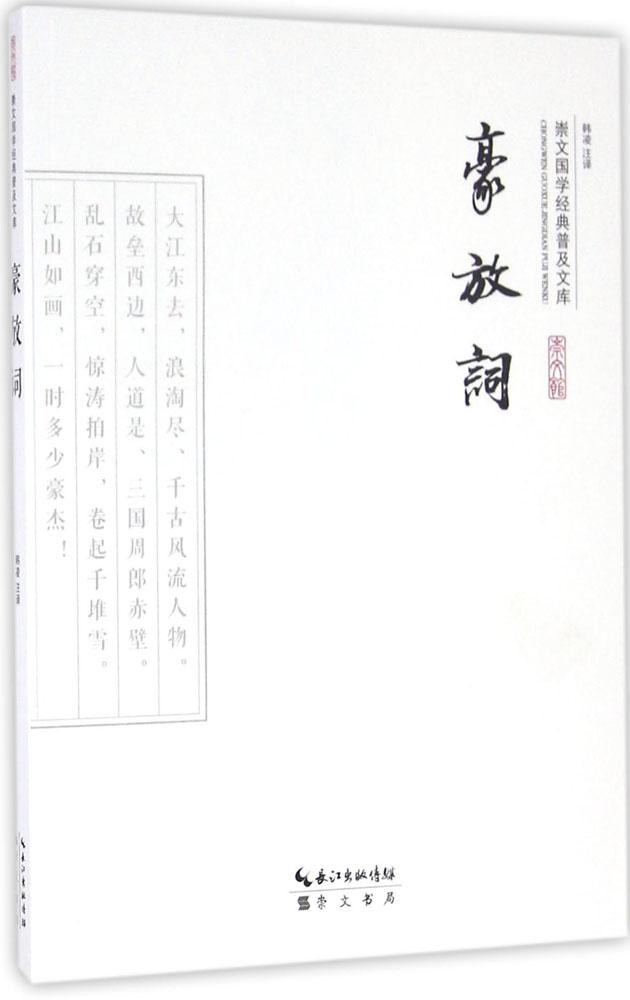 韩凌 注译
崇文国学经典普及文库
CHONGWEN GUOXUE JINGDIAN PUJI WENKU
崇文馆
豪放詞
大江东去，浪淘尽、千古风流人物。
故垒西边，人道是、三国周郎赤壁。
乱石穿空，惊涛拍岸，卷起千堆雪。
江山如画，一时多少豪杰！
长江出版传媒
崇文书局
崇文馆
崇文国学经典普及文库
豪放詞
韩凌 注译
长江出版传媒